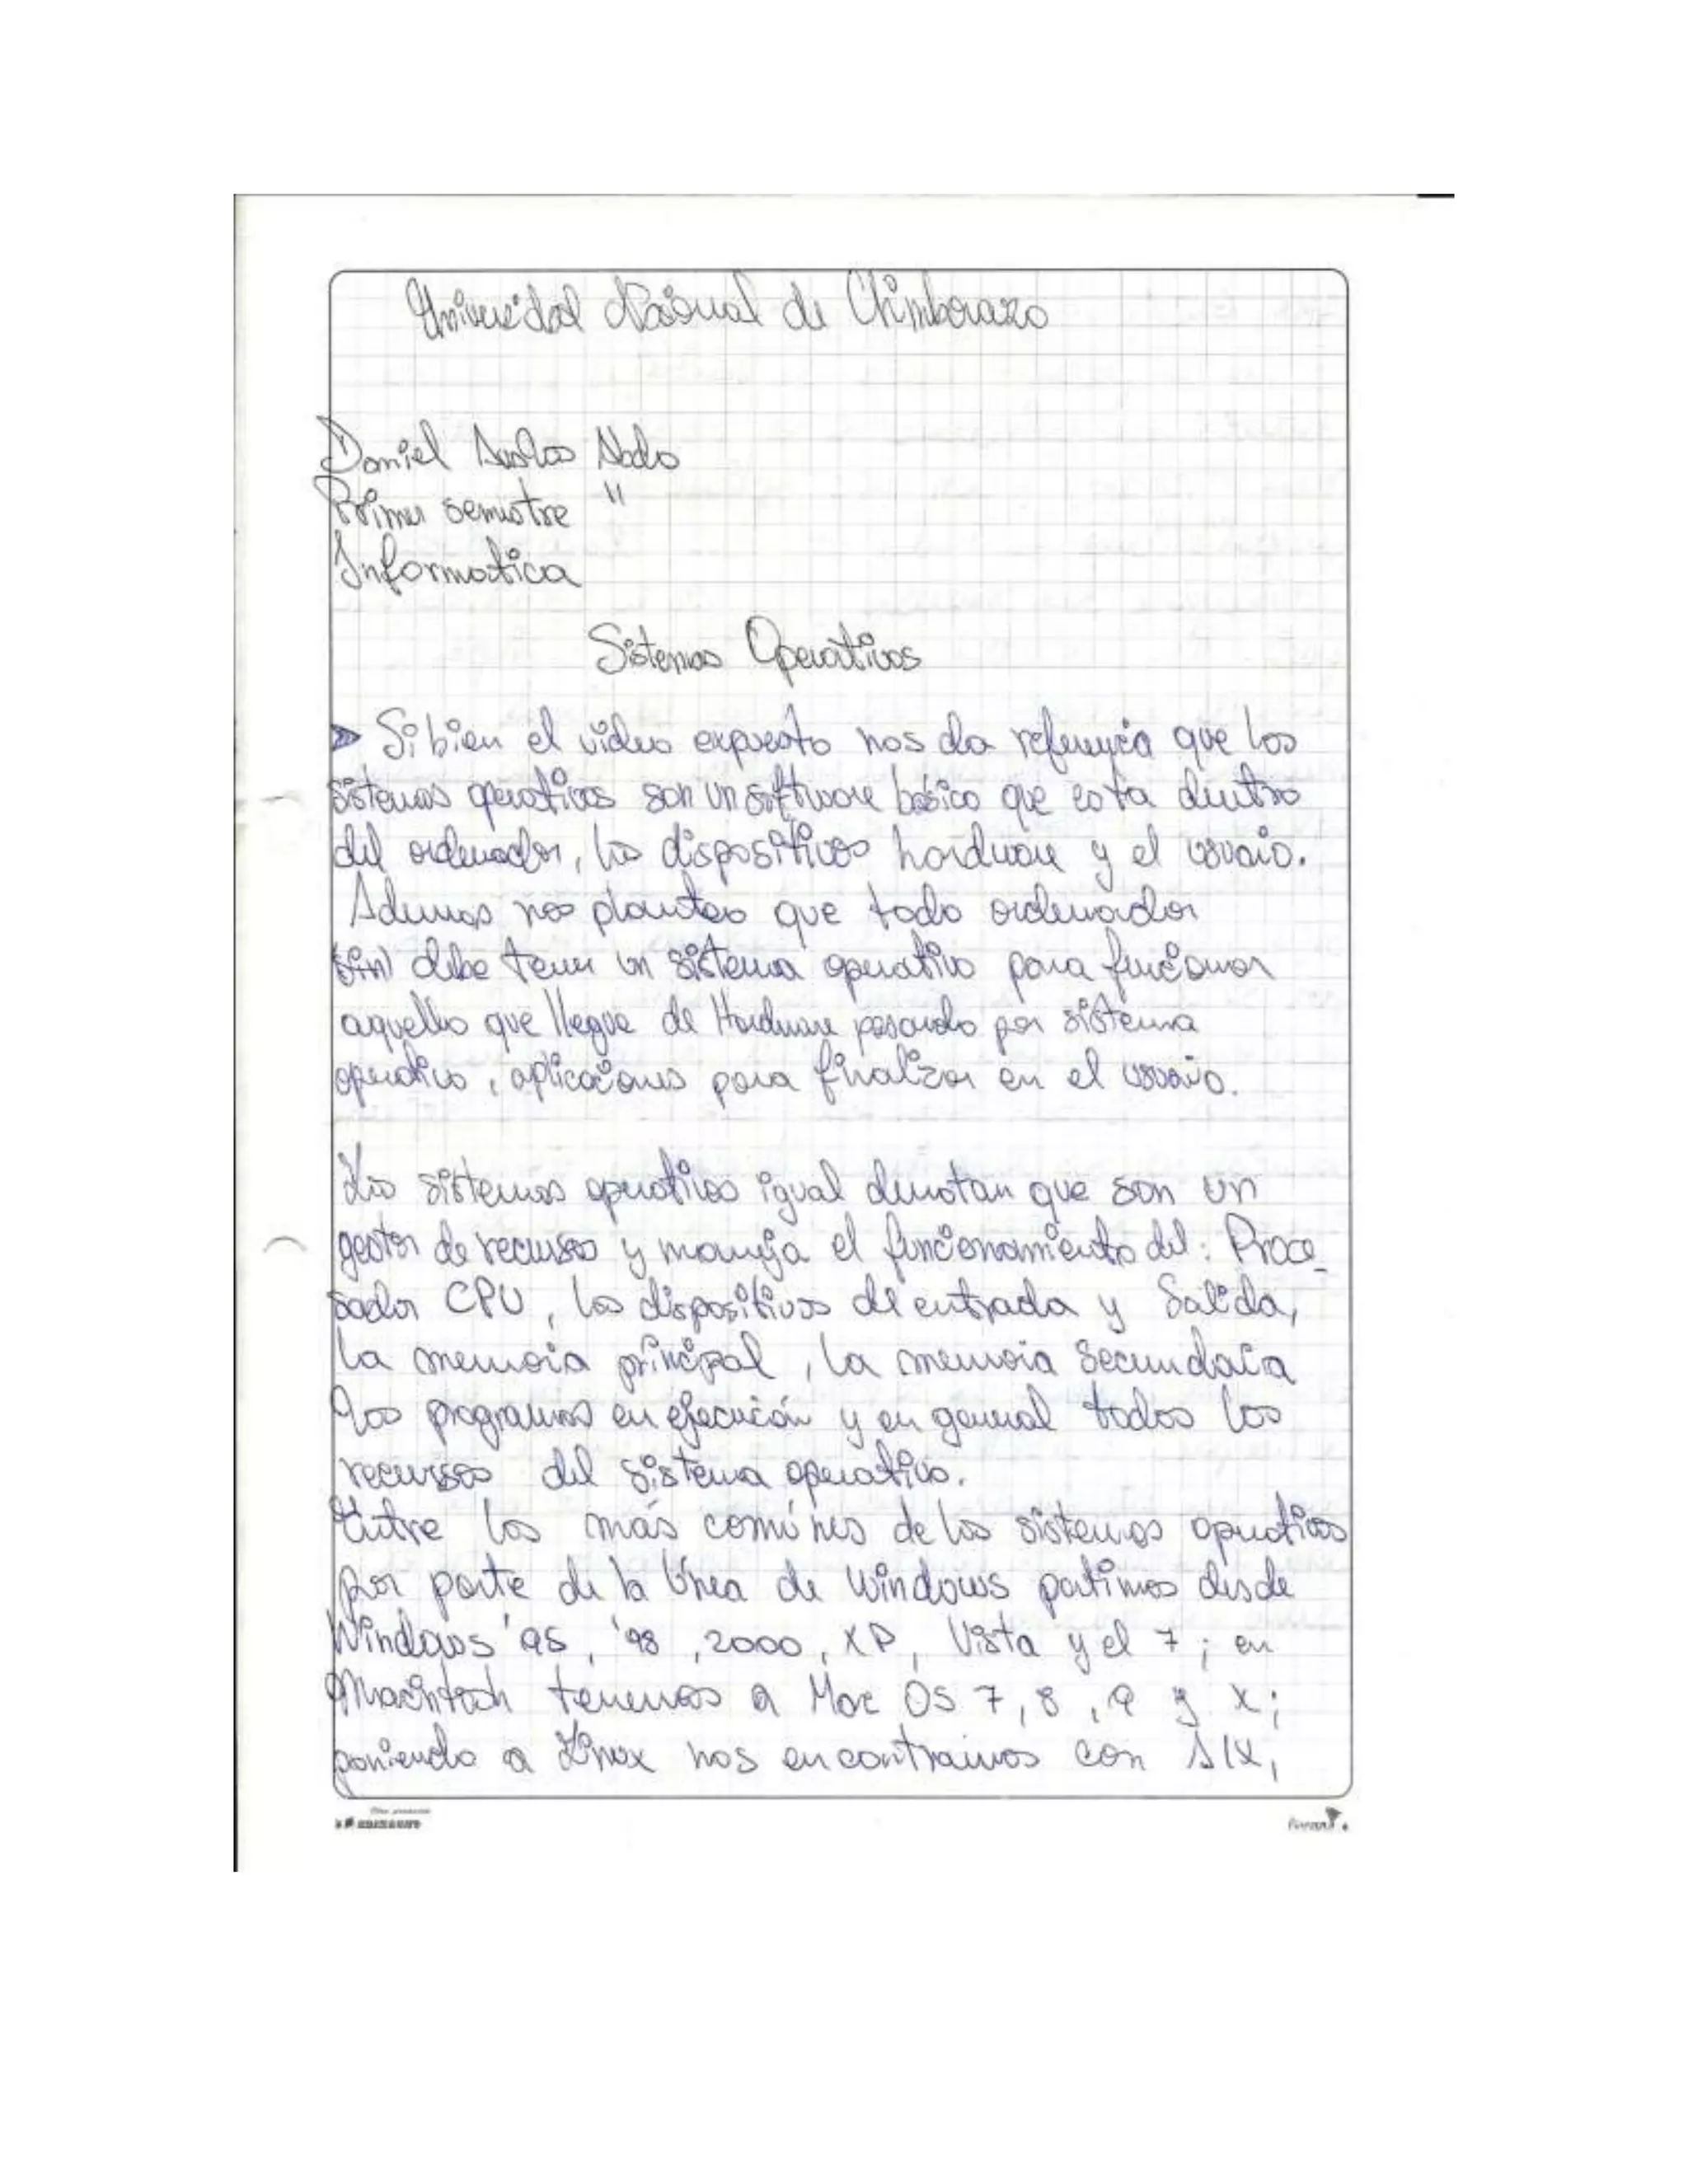 Universidad Nacional de Chimborazo
Daniel
Primer semestre "
Informatica
Sistemas Operativos
Si bien el video expuesto nos da referencia que los
sistemas operativos son un software básico que esta dentro
del ordenador, los dispositivos hardware y el usuario.
Ademas nos plantea que todo ordenador
debe tener un sistema operativo para funcionar
aquello que llegue de Hardware pasando por sistema
operativo, aplicaciones para finalizar en el usuario.
Los sistemas operativos igual denotan que son un
gestor de recursos y maneja el funcionamiento del: Proce_
sador CPU, los dispositivos de entrada y Salida,
la memoria principal, la memoria Secundaria
los programas en ejecución y en general todos los
recursos del sistema operativo.
Entre los más comúnes de los sistemas operativos
por parte de la línea de Windows partimos desde
Windows '95, '98, 2000, XP, Vista y el 7; en
Macintosh tenemos a Mac OS 7, 8, 9 y X;
poniendo a Linux nos encontramos con AIX,